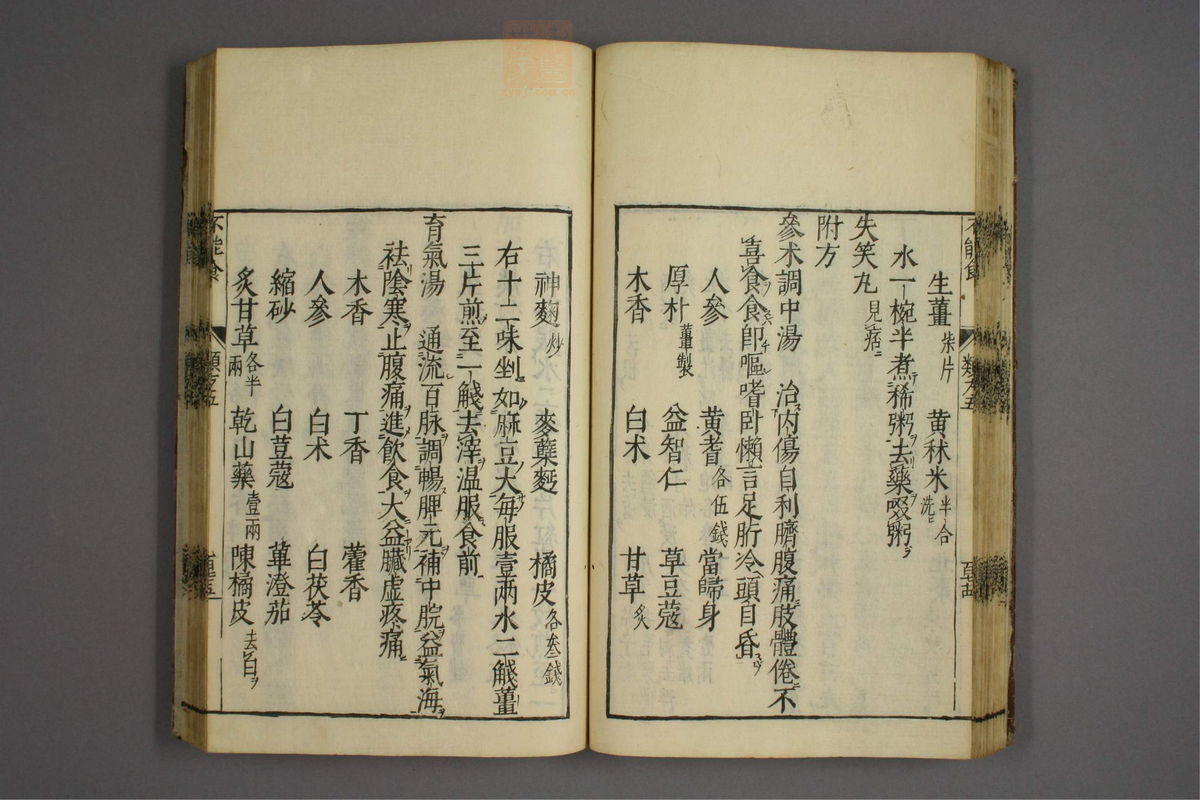 生薑 柒片 黃秫米 半合洗
水一椀半煮稀粥去藥啜粥
失笑丸 見痞
附方
參朮調中湯 治內傷自利臍腹痛肢體倦不
喜食食即嘔嗜卧懶言足胻冷頭目昏
人參 黃耆 各伍錢 當歸身
厚朴 薑製 益智仁 草豆蔻
木香 白朮 甘草 炙
神麯 炒 麥蘗麪 橘皮 各叁錢
右十二味剉如麻豆大每服壹兩水二觥薑
三片煎至一觥去滓温服食前
育氣湯 通流百脉調暢脾元補中脘益氣海
祛陰寒止腹痛進飲食大益臟虛疼痛
木香 丁香 藿香
人參 白朮 白茯苓
縮砂 白荳蔻 蓽澄茄
炙甘草 各半兩 乾山藥 壹兩 陳橘皮 去白
不能食 類方五